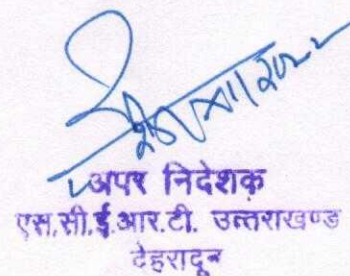 अपर निदेशक
एस.सी.ई.आर.टी. उत्तराखण्ड
देहरादून